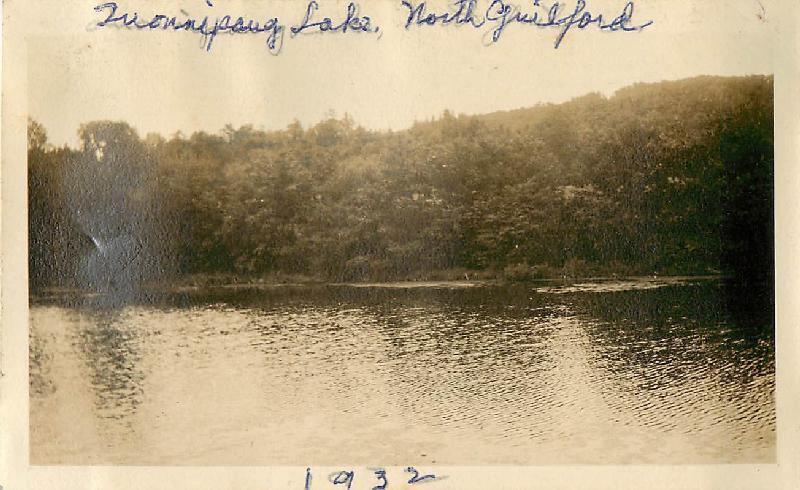 Quonnipaug Lake, North Guilford
1932